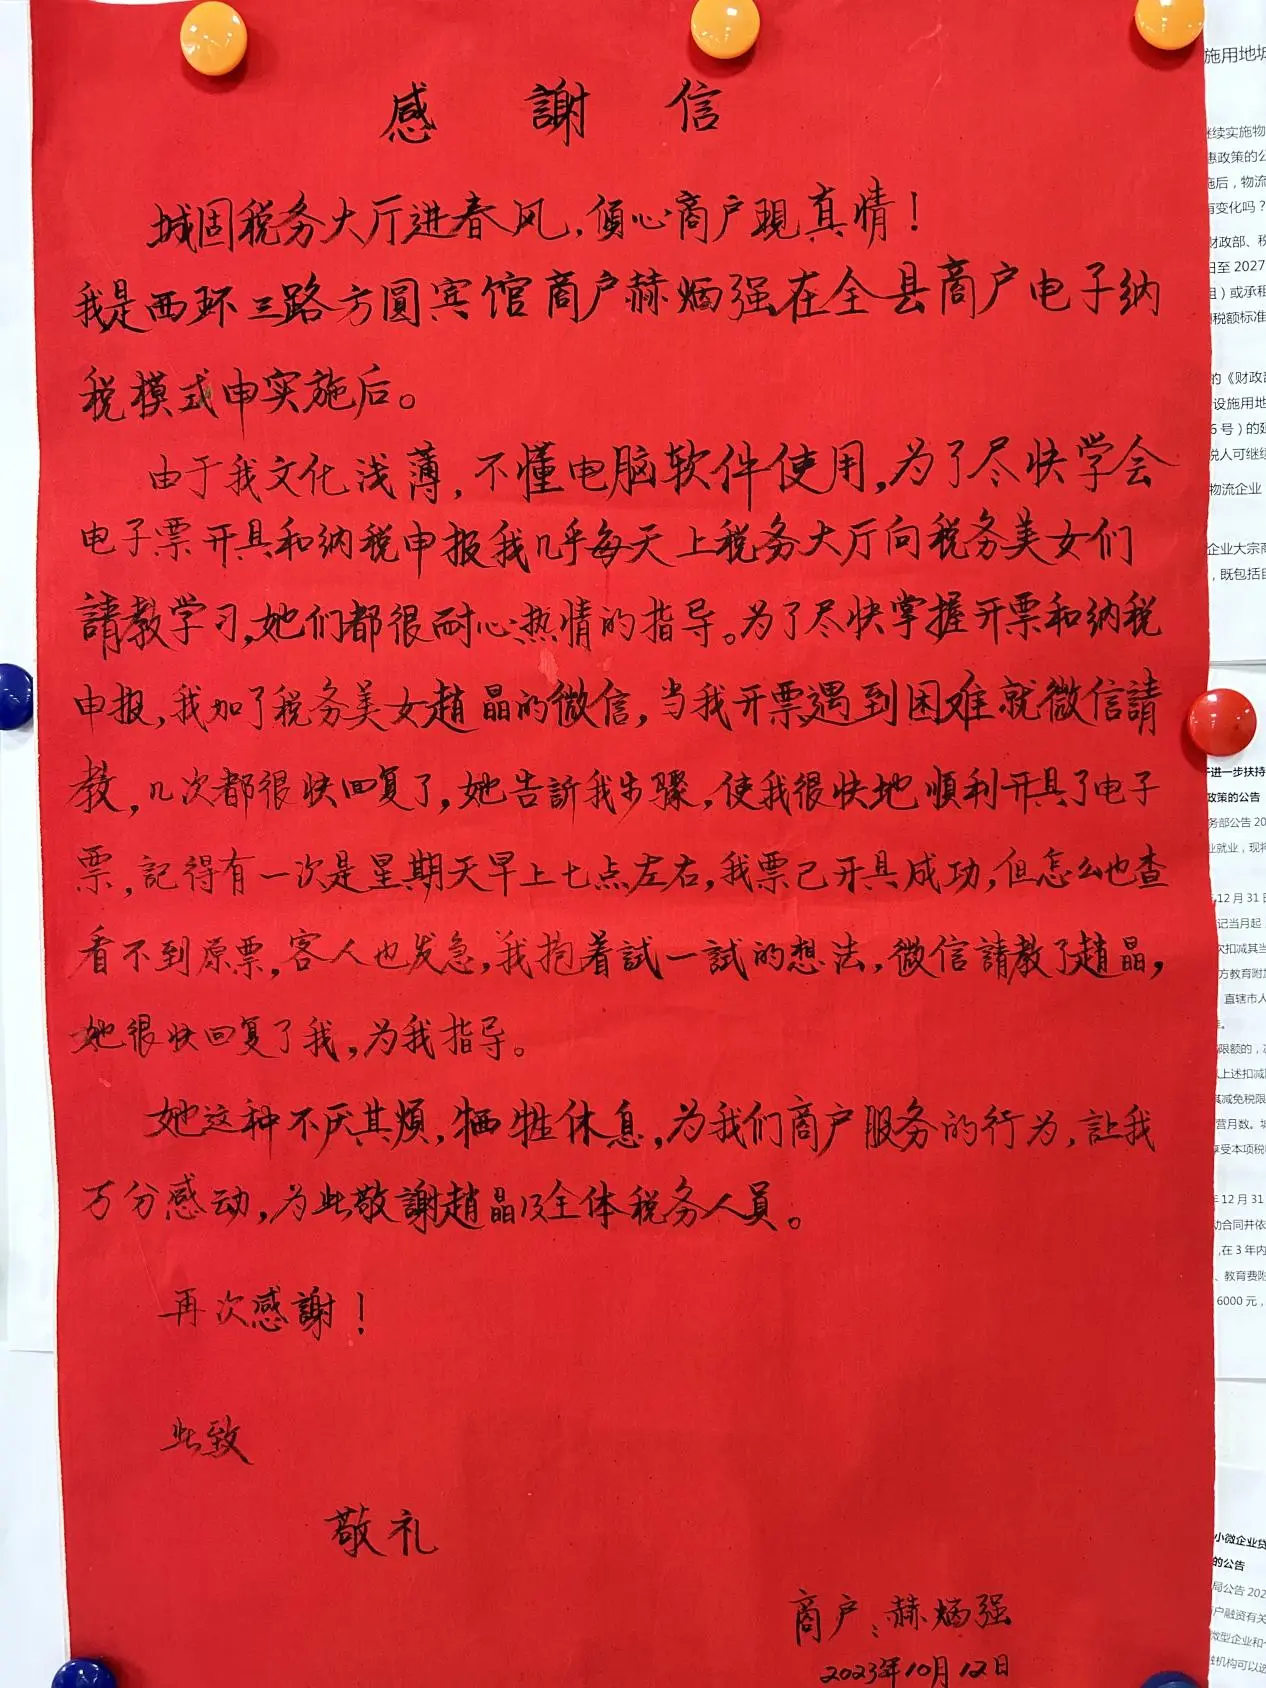 感謝信
城固税务大厅进春风,傾心商户現真情!
我是西环三路方圆宾馆商户赫炳强在全县商户电子纳
税模式申实施后。
由于我文化浅薄,不懂电脑软件使用,为了尽快学会
电子票开具和纳税申报我几乎每天上税务大厅向税务美女们
請教学习,她们都很耐心热情的指导。为了尽快掌握开票和纳税
申报,我加了税务美女趙晶的微信,当我开票遇到困难就微信請
教,几次都很快回复了,她告訴我步驟,使我很快地順利开具了电子
票,記得有一次是星期天早上七点左右,我票已开具成功,但怎么也查
看不到原票,客人也发急,我抱着試一試的想法,微信請教了趙晶,
她很快回复了我,为我指导。
她这种不厌其煩,牺牲休息,为我们商户服务的行为,让我
万分感动,为此敬謝趙晶及全体税务人员。
再次感謝!
此致
敬礼
商户:赫炳强
2023年10月12日
施用地城
继续实施物
惠政策的公
施后,物流
有变化吗?
财政部、税
日至2027
且)或承租
税额标准
的《财政部
设施用地
6号)的延
税人可继续
物流企业
企业大宗商
,既包括自
进一步扶持
政策的公告
务部公告20
业就业,现将
12月31日
记当月起
次扣减其当
方教育附加
直辖市人
限额的,
以上述扣减
其减免税限
营月数。
享受本项税
年12月31
动合同并依
,在3年内
、教育费附
6000元,
小微企业贷
的公告
局公告202
户融资有关
微型企业和
融机构可以选